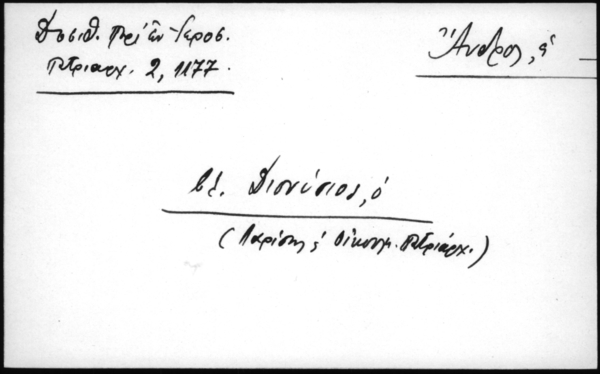 Δοσιθ. Περὶ ἐν Ἱεροσ.
Πατριαρχ. 2, 1177.
Ἄνδρος, ἡ
βλ. Διονύσιος, ὁ
(Λαρίσης & Οἰκουμ. Πατριάρχ.)